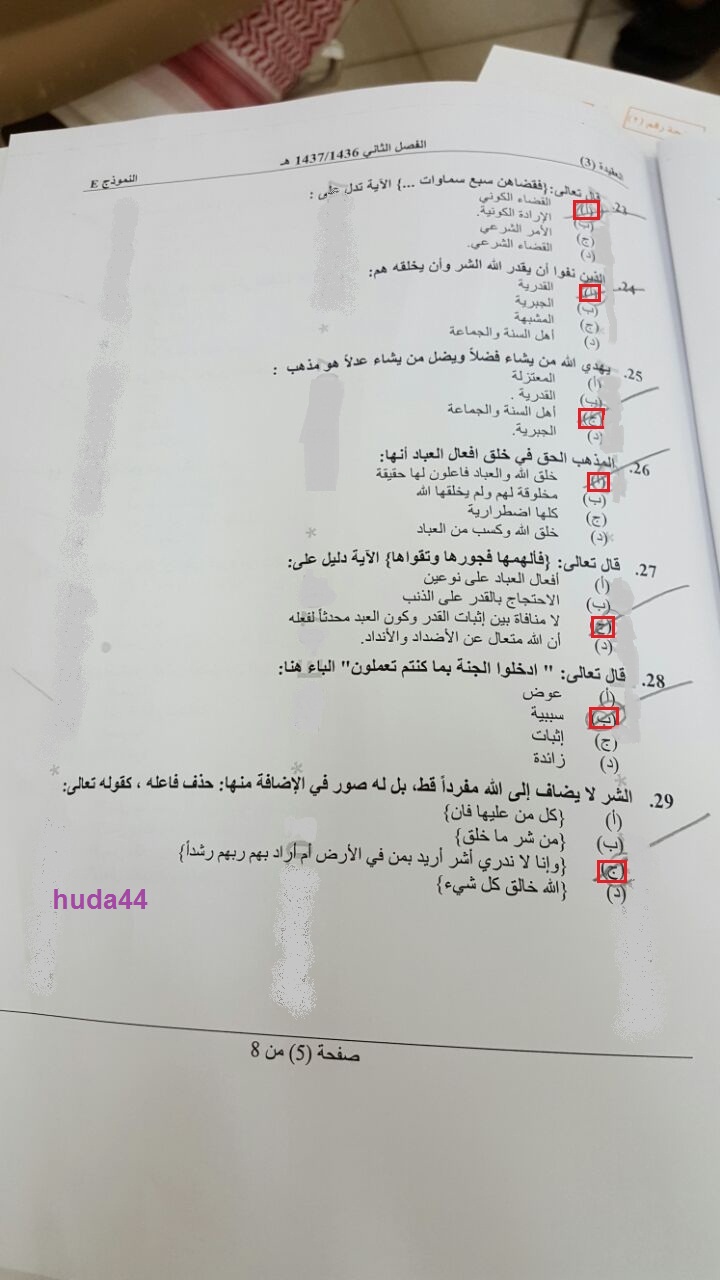 العقيدة (3) الفصل الثاني 1437/1436 هـ النموذج E
23. قال تعالى: {فقضاهن سبع سماوات ...} الآية تدل على :
(أ) القضاء الكوني
(ب) الإرادة الكونية.
(ج) الأمر الشرعي
(د) القضاء الشرعي.
24. الذين نفوا أن يقدر الله الشر وأن يخلقه هم:
(أ) القدرية
(ب) الجبرية
(ج) المشبهة
(د) أهل السنة والجماعة
25. يهدي الله من يشاء فضلاً ويضل من يشاء عدلاً هو مذهب :
(أ) المعتزلة
(ب) القدرية .
(ج) أهل السنة والجماعة
(د) الجبرية.
26. المذهب الحق في خلق افعال العباد أنها:
(أ) خلق الله والعباد فاعلون لها حقيقة
(ب) مخلوقة لهم ولم يخلقها الله
(ج) كلها اضطرارية
(د) خلق الله وكسب من العباد
27. قال تعالى: {فألهمها فجورها وتقواها} الآية دليل على:
(أ) أفعال العباد على نوعين
(ب) الاحتجاج بالقدر على الذنب
(ج) لا منافاة بين إثبات القدر وكون العبد محدثاً لفعله
(د) أن الله متعال عن الأضداد والأنداد.
28. قال تعالى: " ادخلوا الجنة بما كنتم تعملون" الباء هنا:
(أ) عوض
(ب) سببية
(ج) إثبات
(د) زائدة
29. الشر لا يضاف إلى الله مفرداً قط، بل له صور في الإضافة منها: حذف فاعله ، كقوله تعالى:
(أ) {كل من عليها فان}
(ب) {من شر ما خلق}
(ج) {وإنا لا ندري أشر أريد بمن في الأرض أم أراد بهم ربهم رشداً}
(د) {الله خالق كل شيء}
huda44
صفحة (5) من 8